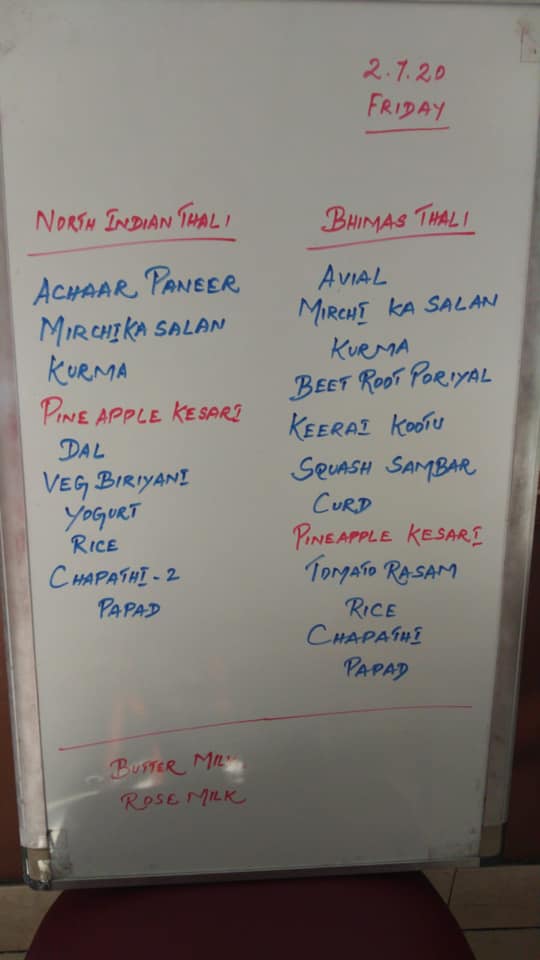 2.7.20
FRIDAY
NORTH INDIAN THALI
ACHAAR PANEER
MIRCHI KA SALAN
KURMA
PINE APPLE KESARI
DAL
VEG BIRIYANI
YOGURT
RICE
CHAPATHI - 2
PAPAD
BHIMAS THALI
AVIAL
MIRCHI KA SALAN
KURMA
BEET ROOT PORIYAL
KEERAI KOOTU
SQUASH SAMBAR
CURD
PINEAPPLE KESARI
TOMATO RASAM
RICE
CHAPATHI
PAPAD
BUTTER MILK
ROSE MILK